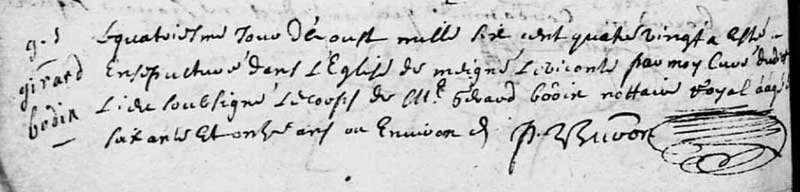 g. s
girard
bodin
Lquatriesme Jour d'Aoust mille six cent quatre vingt a esté
Ensepulturé dans L'Eglise de meigné Leviconte par moy Curé dudit
Lieu soubsigné Le corps de Mre Gérard bodin nottaire Royal aagé d
soixante Et onze ans ou Environ
P. Buron